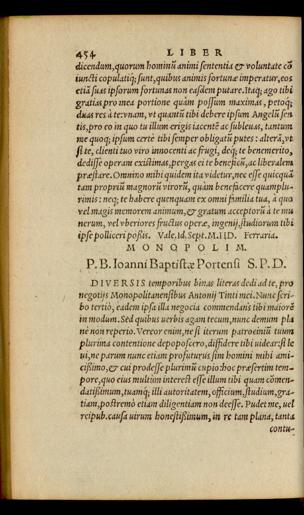 454 LIBER
dicendum, quorum hominũ animi sententia & voluntate cõ
iuncti copulatiq́; sunt, quibus animis fortunæ imperatur, eos
etiã suas ipsorum fortunas non easdem putare. Itaq; ago tibi
gratias pro mea portione quàm possum maximas, petoq;
duas res à te: vnam, vt quantũ tibi debere ipsum Angelũ sen
tis, pro eo in quo tu illum erigis iacentẽ ac subleuas, tantum
me quoq; ipsum certè tibi semper obligatũ putes: alterã, vt
si te, clienti tuo viro innocenti ac frugi, deq; te benemerito,
dedisse operam existimas, pergas ei te beneficũ, ac liberalem
præstare. Omnino mihi quidem ita videtur, nec esse quicquã
tam propriũ magnorũ virorũ, quàm benefacere quamplu-
rimis: neq; te habere quenquam ex omni familia tua, à quo
vel magis memorem animum, & gratum accepturũ à te mu
nerum, vel vberiores fructus operæ, ingenij, studiorum tibi
ipse polliceri possis. Vale. Sept. Ferraria.
MONOPOLIM.
P. B. Ioanni Baptistæ Portensi S. P. D.
DIVERSIS temporibus binas literas dedi ad te, pro
negotijs Monopolitanensibus Antonij Tinti mei. Nunc scri-
bo tertiò, eadem ipsa illa negocia commendans tibi maiorẽ
in modum. Sed quibus verbis agam tecum, nunc demum pla
nè non reperio. Vereor enim, ne si iterum patrociniũ tuum
plurima contentione depoposcero, diffidere tibi videar: si le
ui, ne parum nunc etiam profuturus sim homini mihi ami-
cißimo, & cui prodesse plurimũ cupio: hoc præsertim tem-
pore, quo eius multùm interest esse illum tibi quam cõmen-
datißimum, tuamq; illi autoritatem, officium, studium, gra-
tiam, postremò etiam diligentiam non deesse. Pudet me, uel
reipub. causa uirum honestißimum, in re tam plana, tanta
contu-